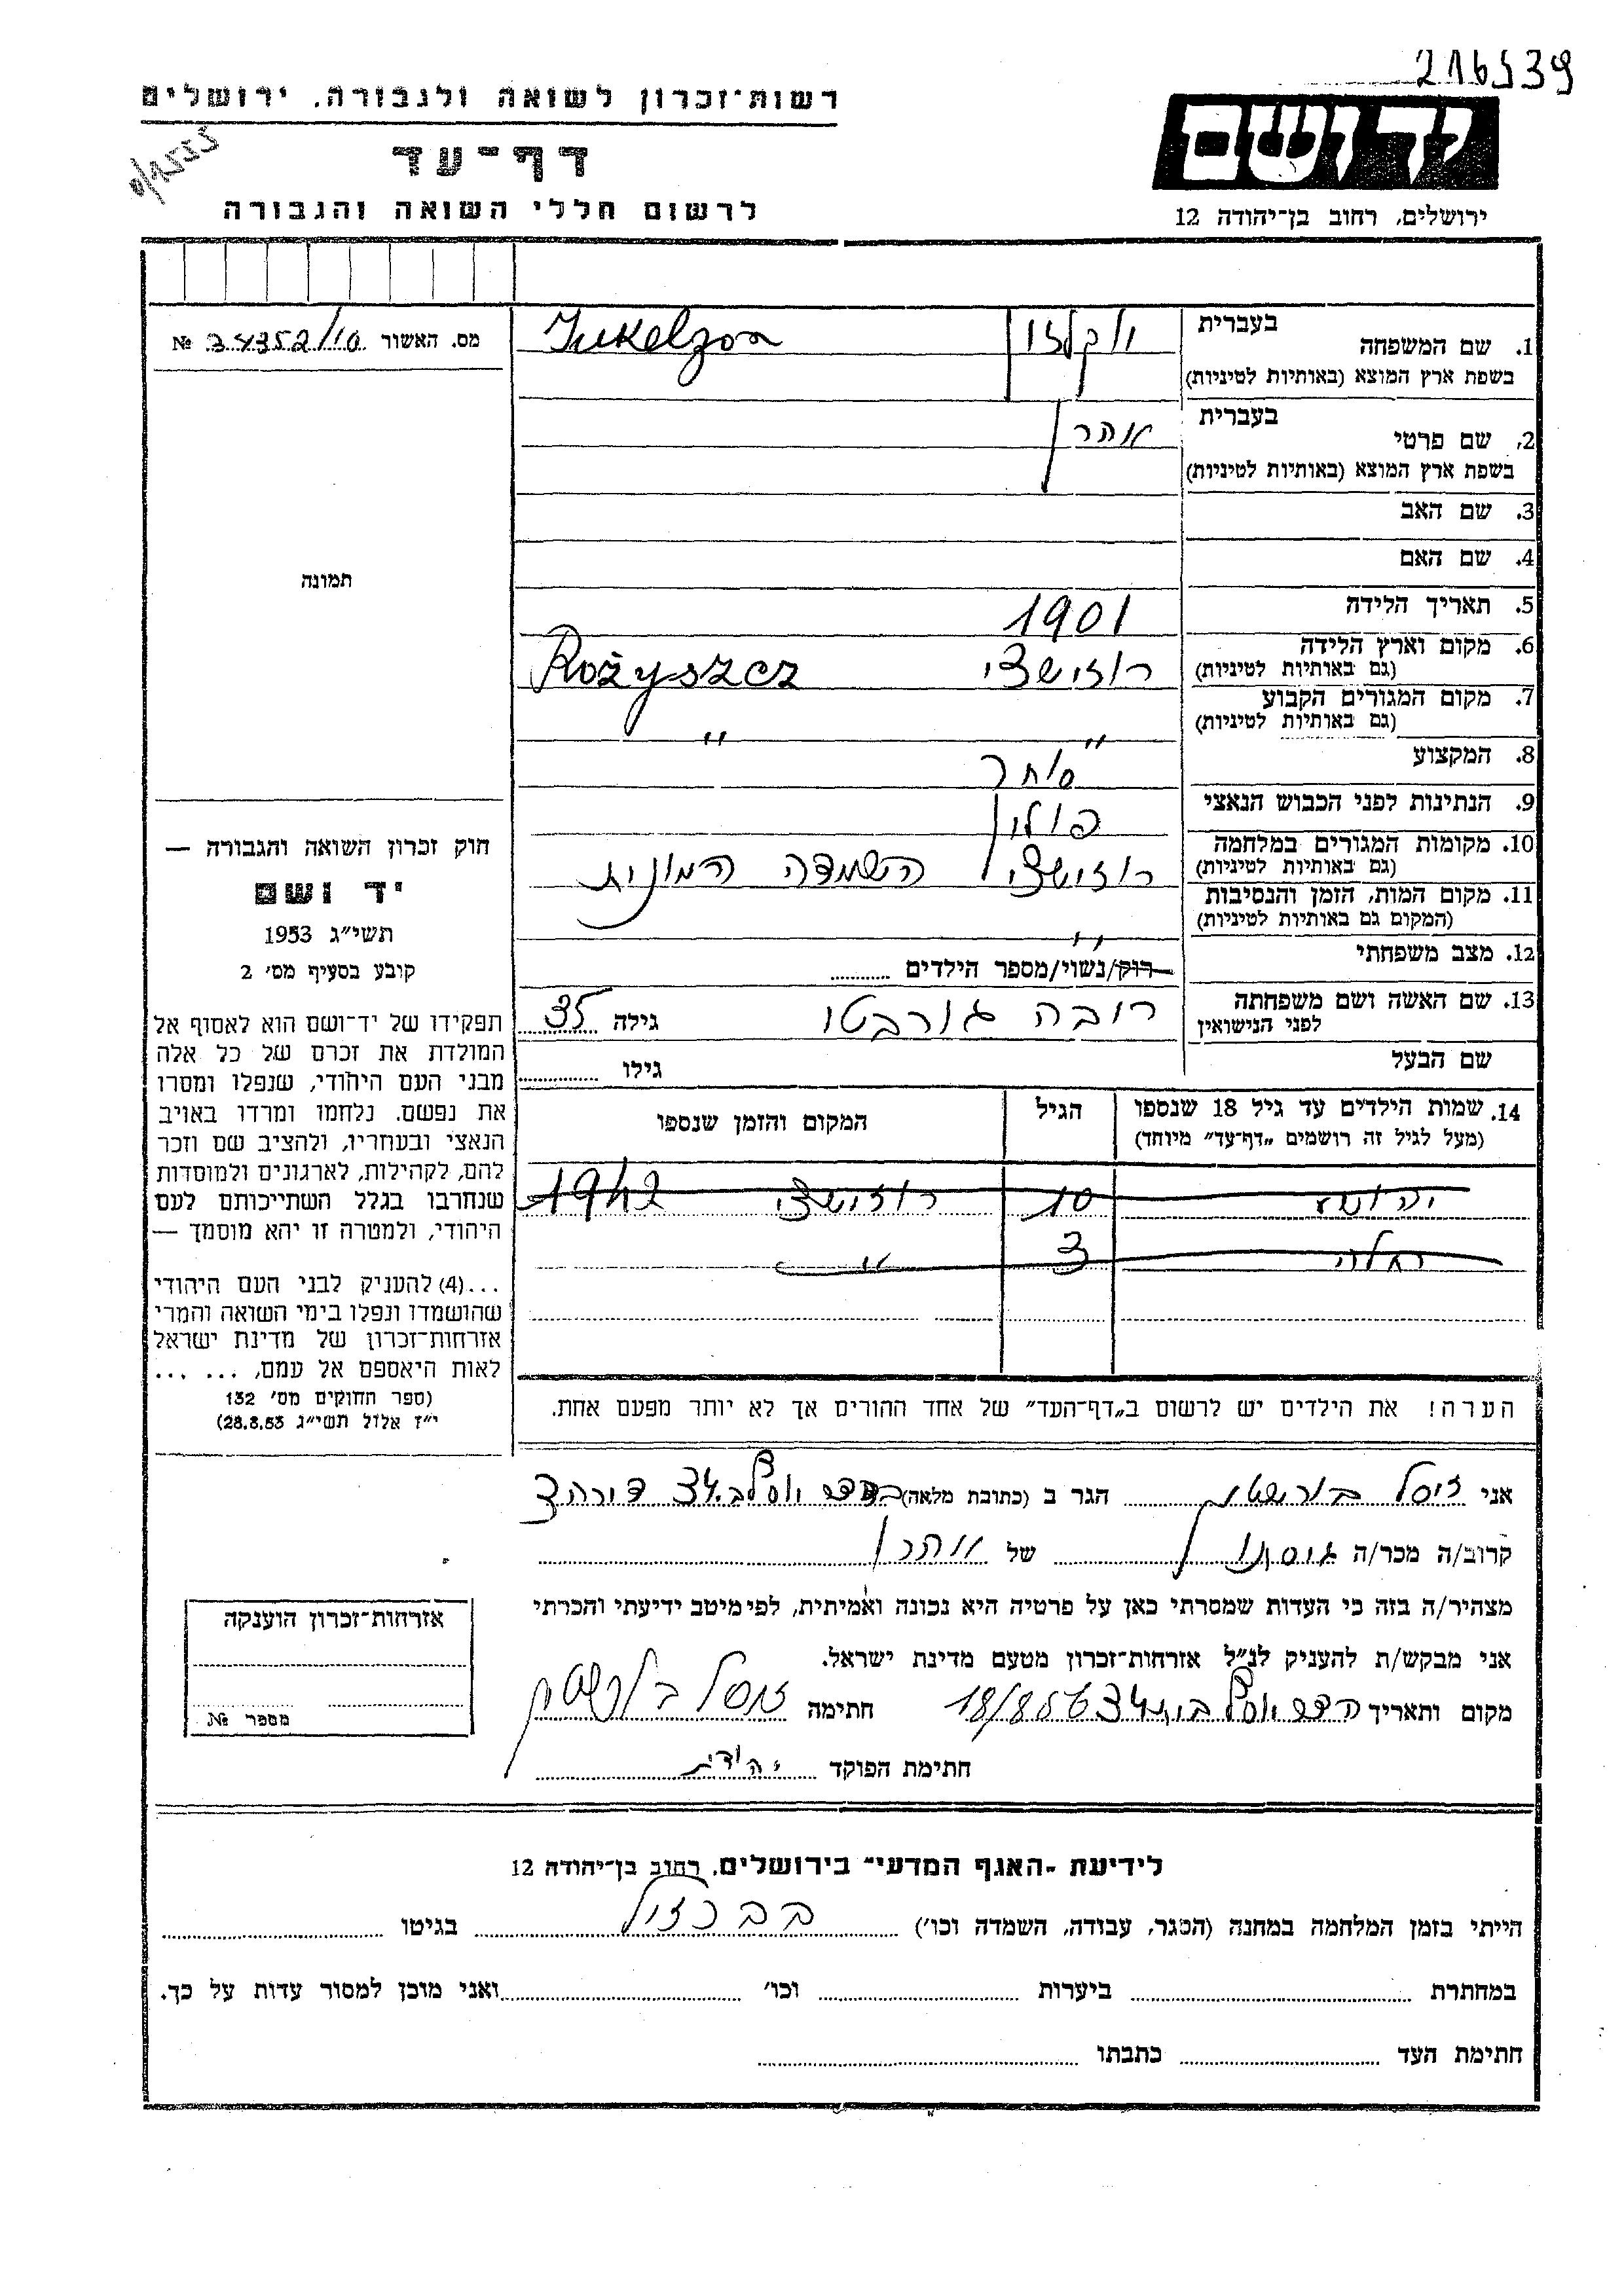 216539
רשות־זכרון לשואה ולגבורה, ירושלים
דף־עד
לרשום חללי השואה והגבורה
ידושם
ירושלים, רחוב בן־יהודה 12
מס. האשור 34352/10 №
תמונה
1. שם המשפחה בעברית
Jukelzon
בשפת ארץ המוצא (באותיות לטיניות)
2. שם פרטי בעברית אהרן
בשפת ארץ המוצא (באותיות לטיניות)
3. שם האב
4. שם האם
5. תאריך הלידה 1901
6. מקום וארץ הלידה רוזישצי Rożyszcz
(גם באותיות לטיניות)
7. מקום המגורים הקבוע
(גם באותיות לטיניות) " "
8. המקצוע סוחר
9. הנתינות לפני הכבוש הנאצי פולין
10. מקומות המגורים במלחמה
(גם באותיות לטיניות) רוזישצי השמדה המונית
11. מקום המות, הזמן והנסיבות
(המקום גם באותיות לטיניות) "
12. מצב משפחתי רוק/נשוי/מספר הילדים
13. שם האשה ושם משפחתה
לפני הנישואין גילה 35
שם הבעל גילו
14. שמות הילדים עד גיל 18 שנספו הגיל המקום והזמן שנספו
(מעל לגיל זה רושמים "דף־עד" מיוחד)
10 רוזישצי 1942
3 "
הערה! את הילדים יש לרשום ב"דף־העד" של אחד ההורים אך לא יותר מפעם אחת.
חוק זכרון השואה והגבורה —
יד ושם
תשי"ג 1953
קובע בסעיף מס' 2
תפקידו של יד־ושם הוא לאסוף אל
המולדת את זכרם של כל אלה
מבני העם היהודי, שנפלו ומסרו
את נפשם. נלחמו ומרדו באויב
הנאצי ובעוזריו, ולהציב שם וזכר
להם, לקהילות, לארגונים ולמוסדות
שנחרבו בגלל השתייכותם לעם
היהודי, ולמטרה זו יהא מוסמך —
...(4) להעניק לבני העם היהודי
שהושמדו ונפלו בימי השואה והמרי
אזרחות־זכרון של מדינת ישראל
לאות היאספם אל עמם, ... ...
(ספר החוקים מס' 132
י"ז אלול תשי"ג 28.8.53)
אני זיסל בורשטין הגר ב (כתובת מלאה)
קרוב/ה מכר/ה של אהרן
מצהיר/ה בזה כי העדות שמסרתי כאן על פרטיה היא נכונה ואמיתית, לפי מיטב ידיעתי והכרתי
אני מבקש/ת להעניק לנ"ל אזרחות־זכרון מטעם מדינת ישראל.
מקום ותאריך חתימה זיסל בורשטין
חתימת הפוקד יהודית
אזרחות־זכרון הוענקה
מספר №
לידיעת "האגף המדעי" בירושלים, רחוב בן־יהודה 12
הייתי בזמן המלחמה במחנה (הסגר, עבודה, השמדה וכו') בגיטו
במחתרת ביערות וכו' ואני מוכן למסור עדות על כך.
חתימת העד כתבתו